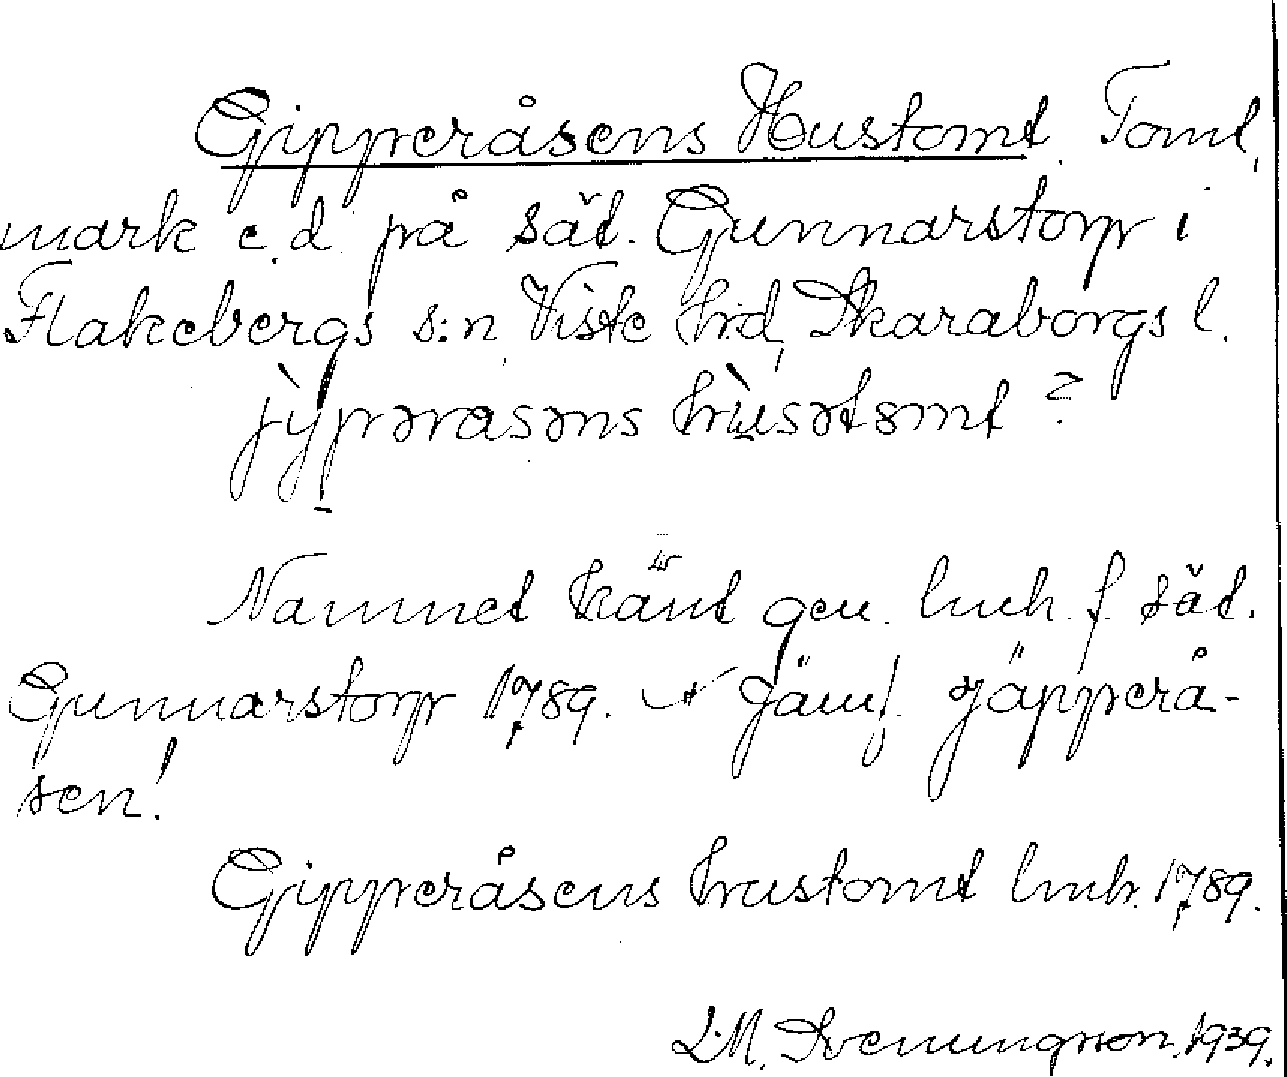 Gipperåsens Hustomt. Tomt,
mark e.d. på säd. Gunnarstorp i
Flakebergs s:n, Viste hrd, Skaraborgs l.
jỳpərasəns hùsətomt ?
Namnet känt gen. lmh. f. säd.
Gunnarstorp 1789. Jämf. Jäpperå-
sen!
Gipperåsens hustomt lmh. 1789.
D.M. Svenungsson. 1939.